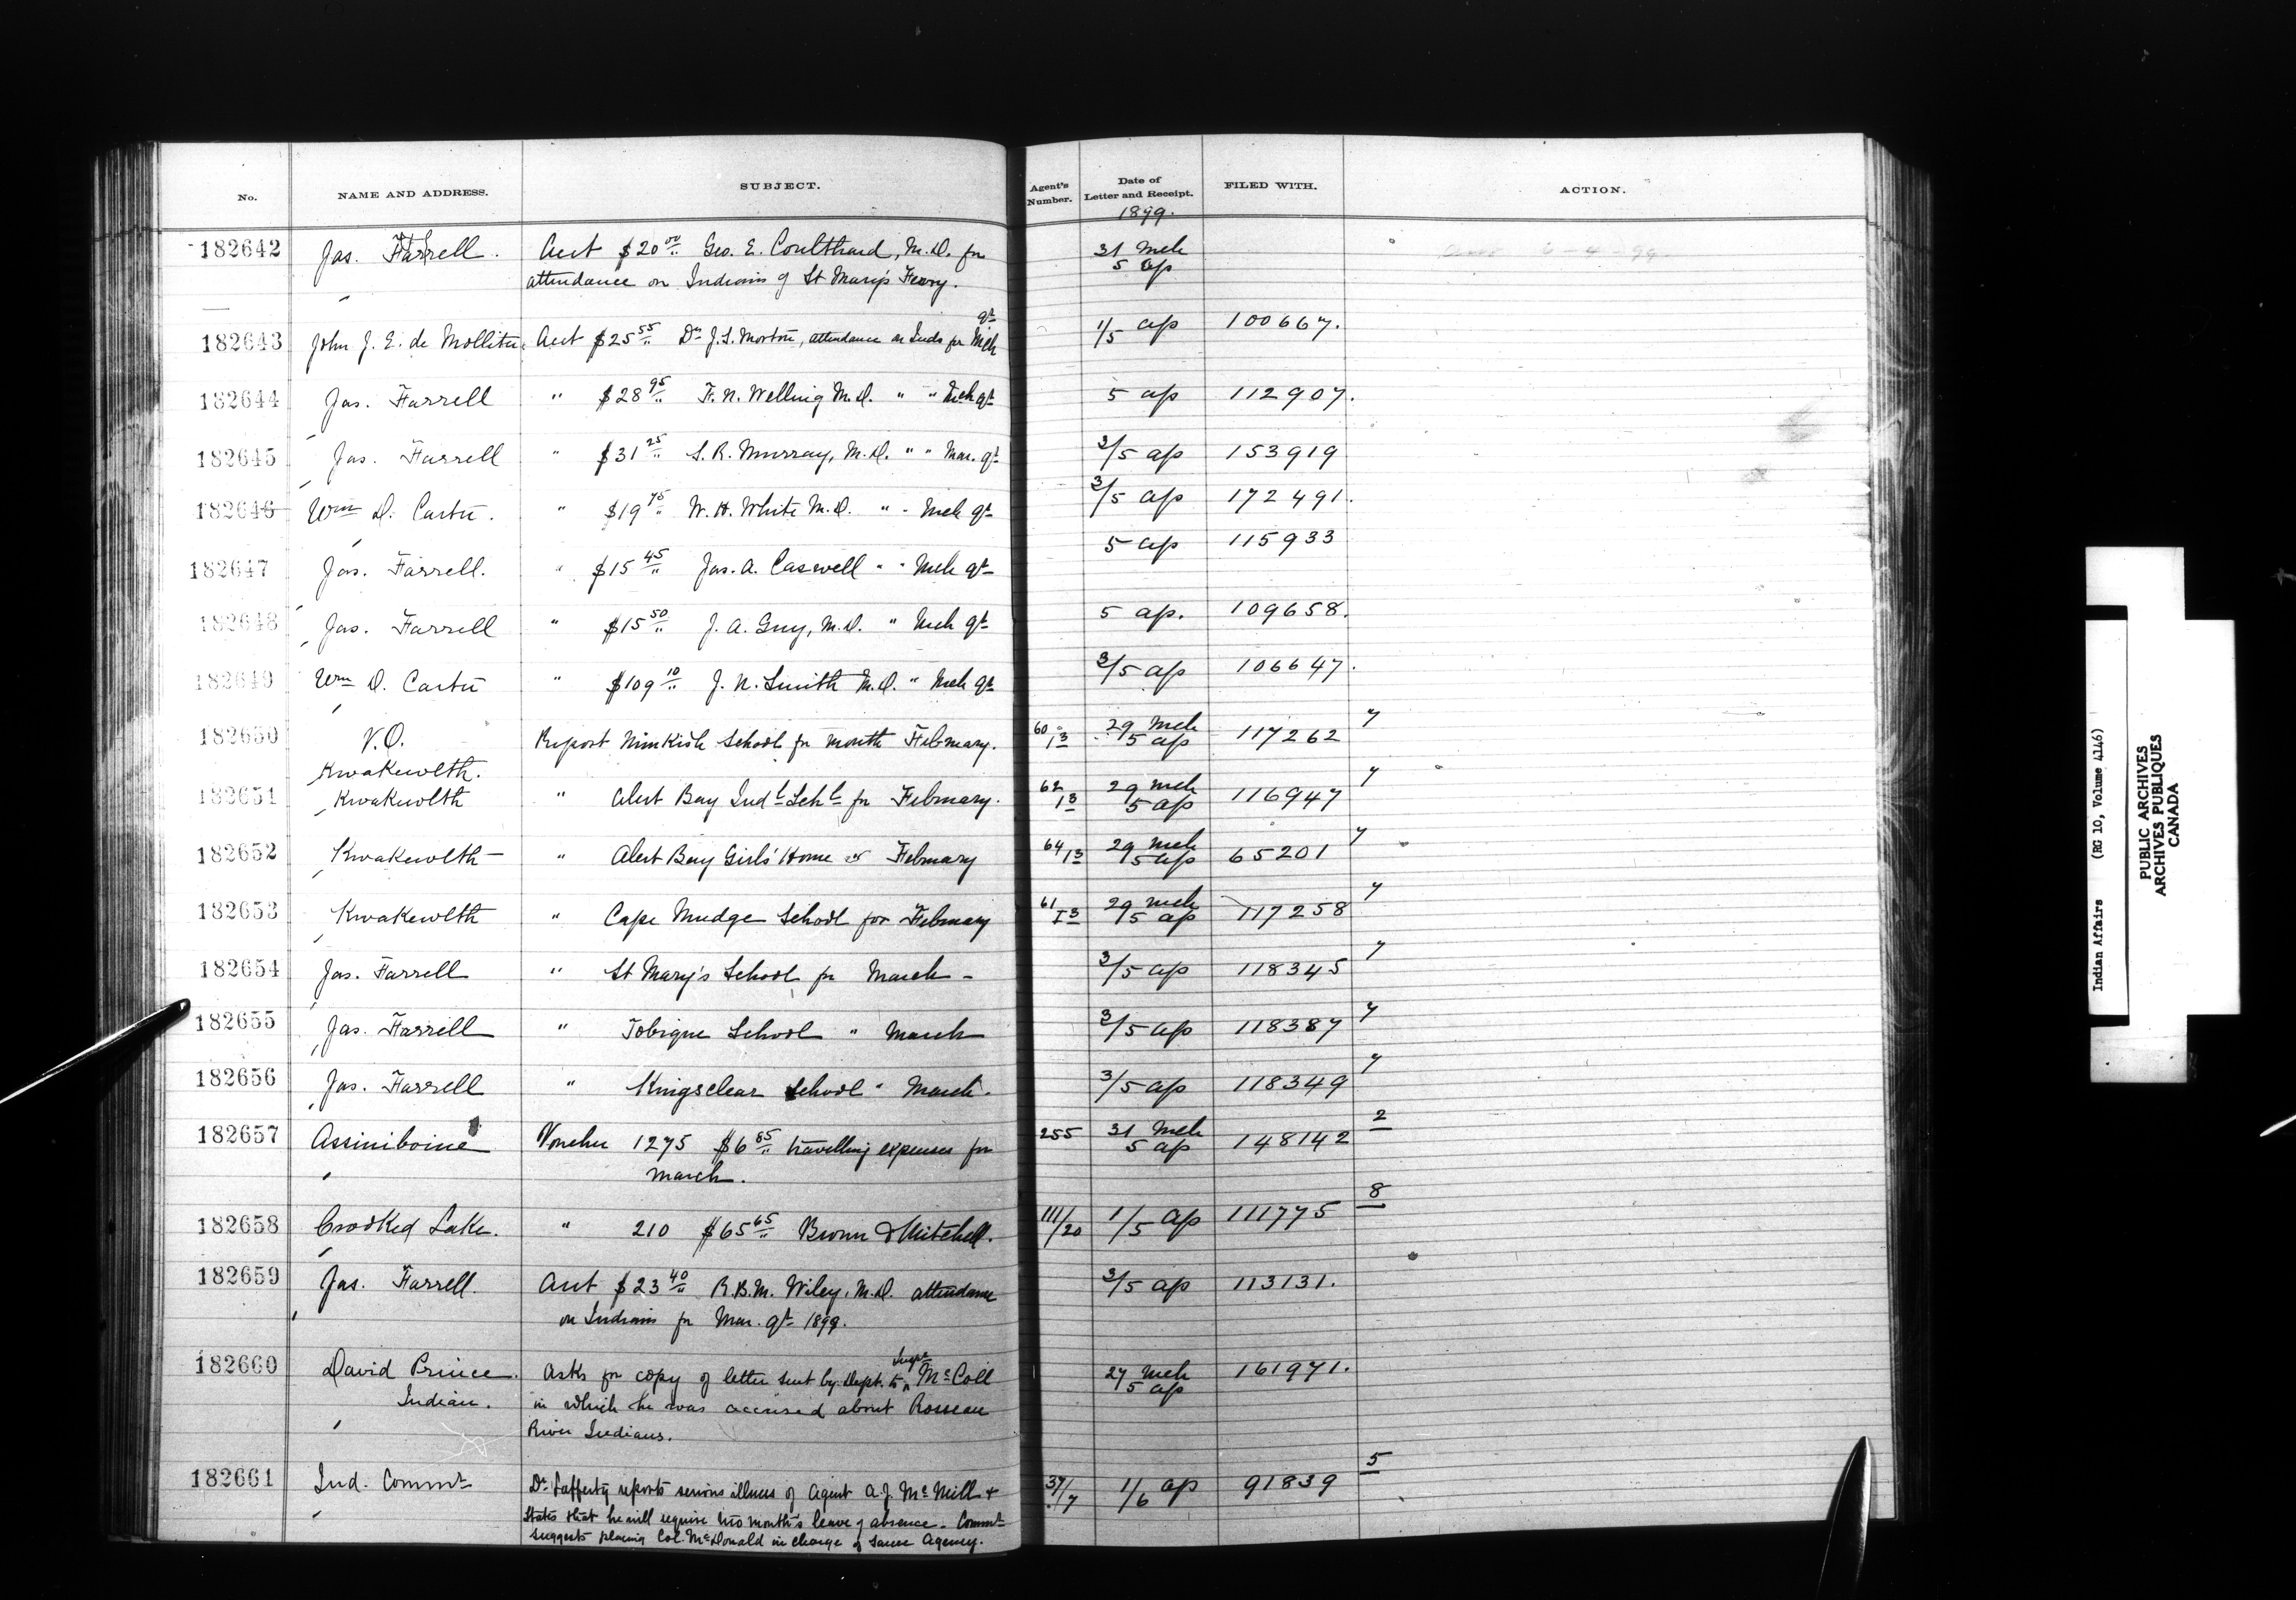 No. NAME AND ADDRESS. SUBJECT. Agent's Number. Date of Letter and Receipt. FILED WITH. ACTION.
1899.
182642 Jas. Farrell. Acct $20 00 Geo. E. Coulthard, M.D. for 31 Mch
attendance on Indians of St Mary's Ferry. 5 ap
182643 John J. E. de Molliter Acct $25 55 Dr J. S. Morton, attendance on Inds for Mch qt 1/5 ap 100667.
182644 Jas. Farrell " $28 95 F. N. Welling M.D. " " Mch qt 5 ap 112907.
182645 Jas. Farrell " $31 25 S. R. Murray, M.D. " " Mar. qt 3/5 ap 153919
182646 Wm D. Carter. " $19 75 W. H. White M.D. " " Mch qt 3/5 ap 172491.
182647 Jas. Farrell. " $15 45 Jas. A. Caswell " " Mch qt 5 ap 115933
182648 Jas. Farrell " $15 50 J. A. Guy, M.D. " Mch qt 5 ap. 109658.
182649 Wm D. Carter " $109 10 J. N. Smith M.D. " Mch qt 3/5 ap 106647.
182650 V.O. Report Nimkish School for month February. 60/13 29 Mch 117262 7
Kwakewlth. 5 ap
182651 Kwakewlth " Alert Bay Indl Schl for February. 62/13 29 Mch 116947 7
5 ap
182652 Kwakewlth " Alert Bay Girls' Home " February 64/13 29 Mch 65201 7
5 ap
182653 Kwakewlth " Cape Mudge School for February 61/13 29 Mch 117258 7
5 ap
182654 Jas. Farrell " St Mary's School for March 3/5 ap 118345 7
182655 Jas. Farrell " Tobique School " March 3/5 ap 118387 7
182656 Jas. Farrell " Kingsclear School " March. 3/5 ap 118349 7
182657 Assiniboine Voucher 1275 $6 85 travelling expenses for 255 31 Mch 148142 2
March. 5 ap
182658 Crooked Lake. " 210 $65 65 Brown & Mitchell. 111/20 1/5 ap 111775 8
182659 Jas. Farrell. Acct $23 40 R.B.M. Wiley, M.D. attendance 3/5 ap 113131.
on Indians for Mar. qt 1899.
182660 David Prince. Asks for copy of letter sent by Dept. to Supt McColl 27 Mch 161971.
Indian. in which he was accused about Roseau 5 ap
River Indians.
182661 Ind. Commr Dr Lafferty reports serious illness of Agent A. J. McNeill & 37/7 1/6 ap 91839 5
states that he will require two month's leave of absence. Commr
suggests placing Col. McDonald in charge of Sarcee Agency.
Indian Affairs (RG 10, Volume 4146)
PUBLIC ARCHIVES
ARCHIVES PUBLIQUES
CANADA